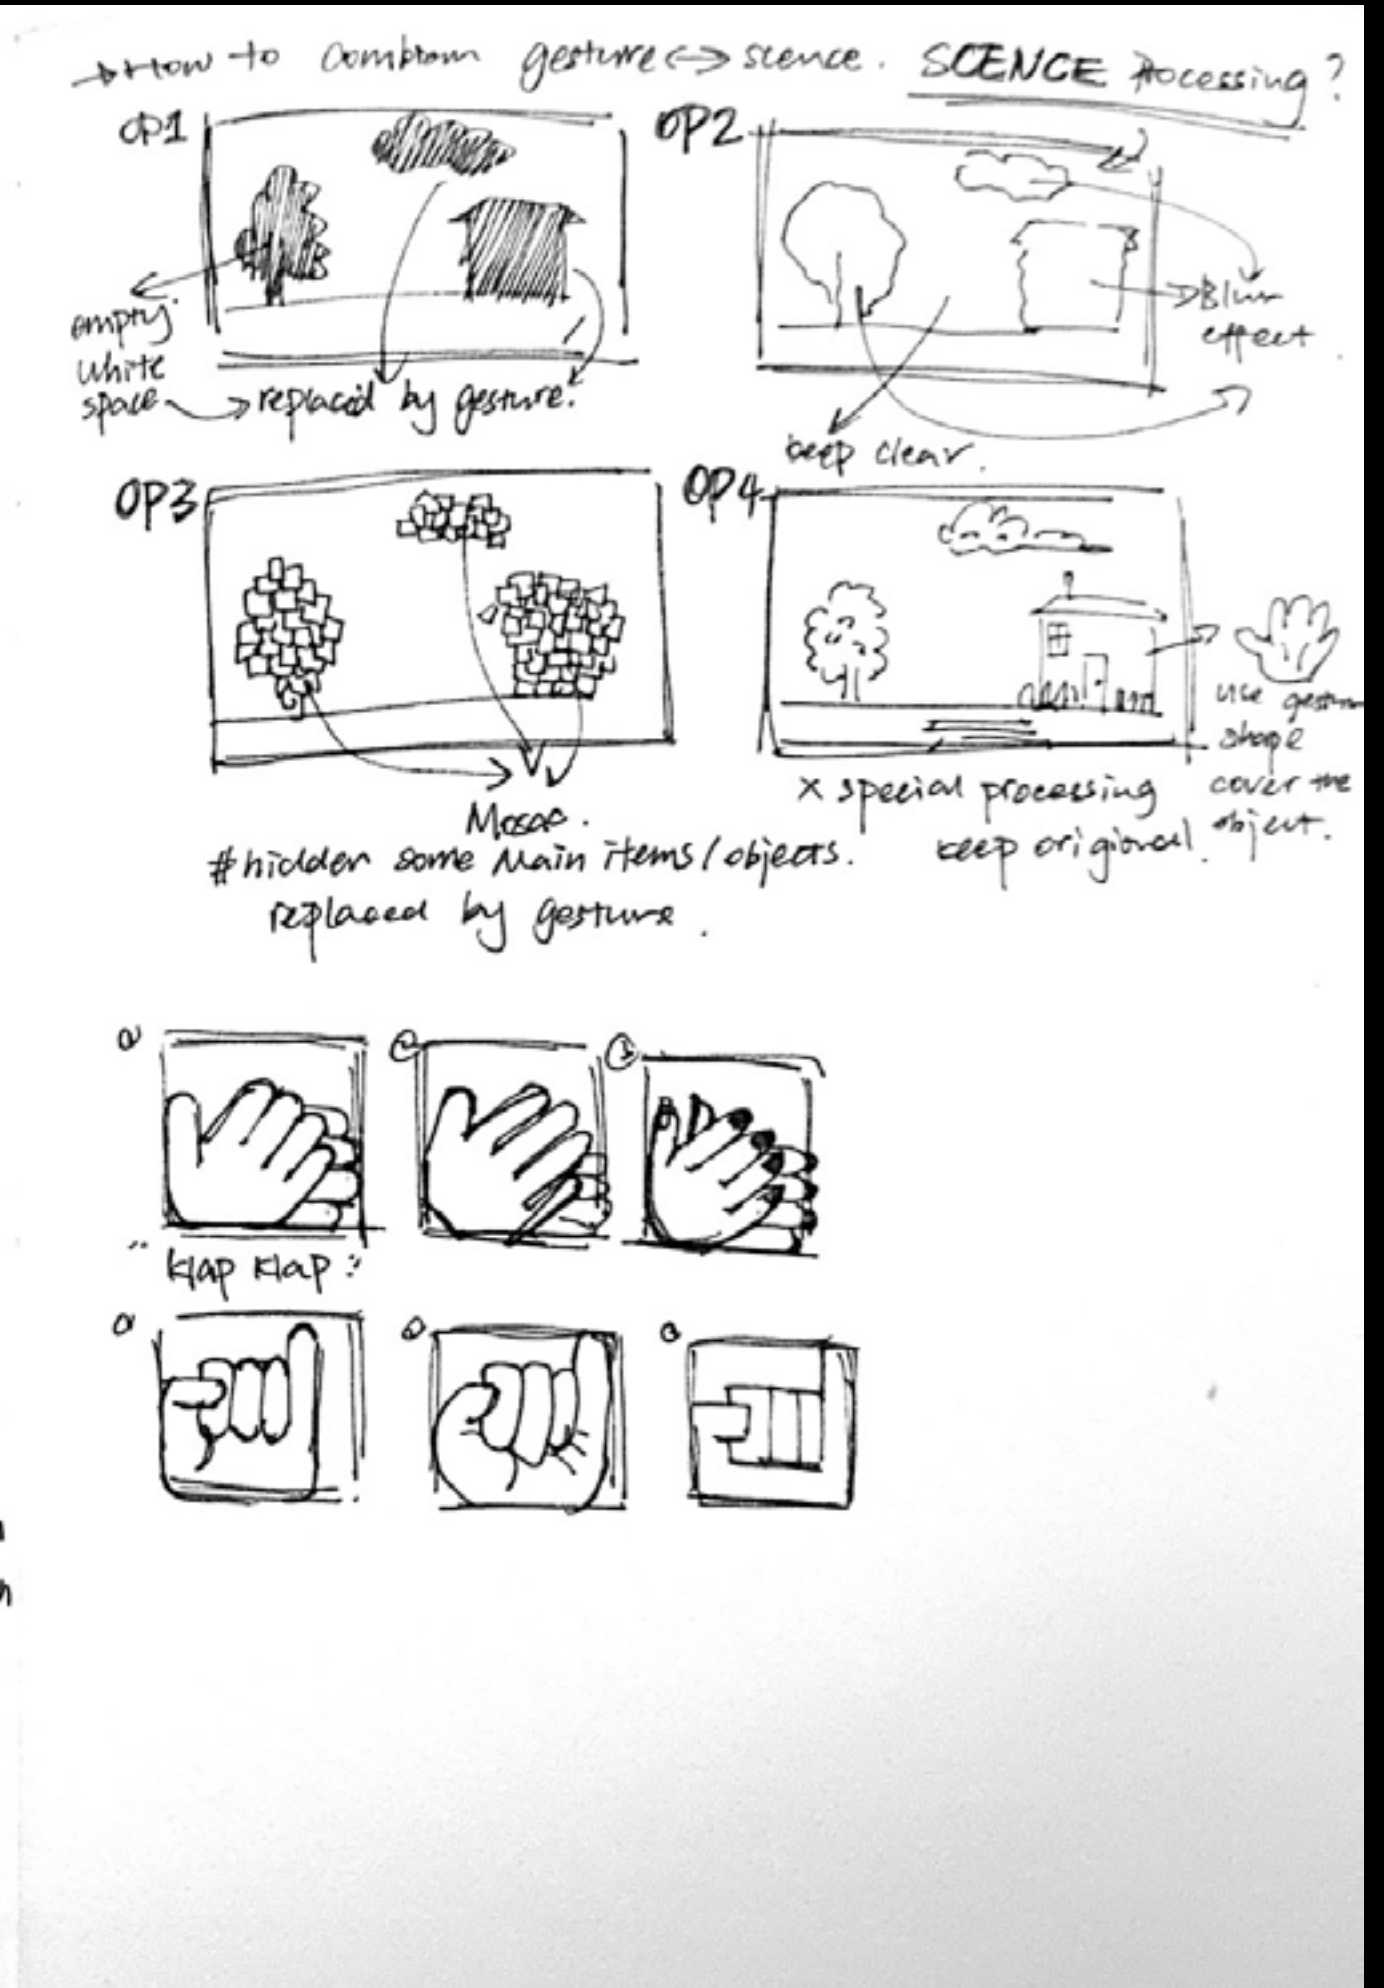 → How to combian gesture <-> scence. SCENCE Processing?
OP1
empty
white
space → replaced by gesture.
OP2
Blur
effect
keep clear.
OP3
Mosac.
#hidden some Main items/objects.
replaced by gesture.
OP4
use gesture
shape
cover the
object.
x special processing
keep origional.
①
②
③
"klap klap"